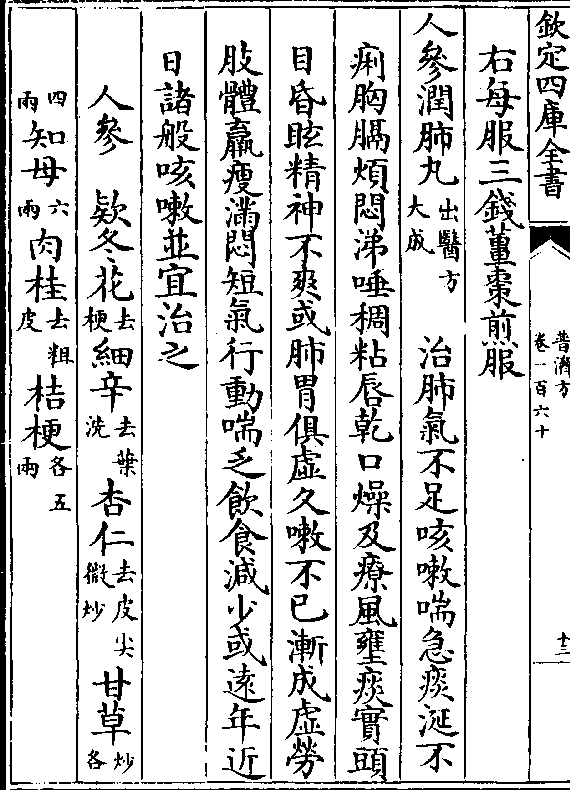 欽定四庫全書
普濟方
卷一百六十
十三
右每服三錢薑棗煎服
人參潤肺丸出醫方大成 治肺氣不足咳嗽喘急痰涎不
痢胸膈煩悶涕唾稠粘唇乾口燥及療風壅痰實頭
目昏眩精神不爽或肺胃俱虛久嗽不已漸成虛勞
肢體羸瘦滿悶短氣行動喘乏飲食減少或遠年近
日諸般咳嗽並宜治之
人參 欵冬花去梗細辛去葉洗杏仁去皮尖微炒甘草炒各
四兩知母六兩肉桂去粗皮桔梗各五兩